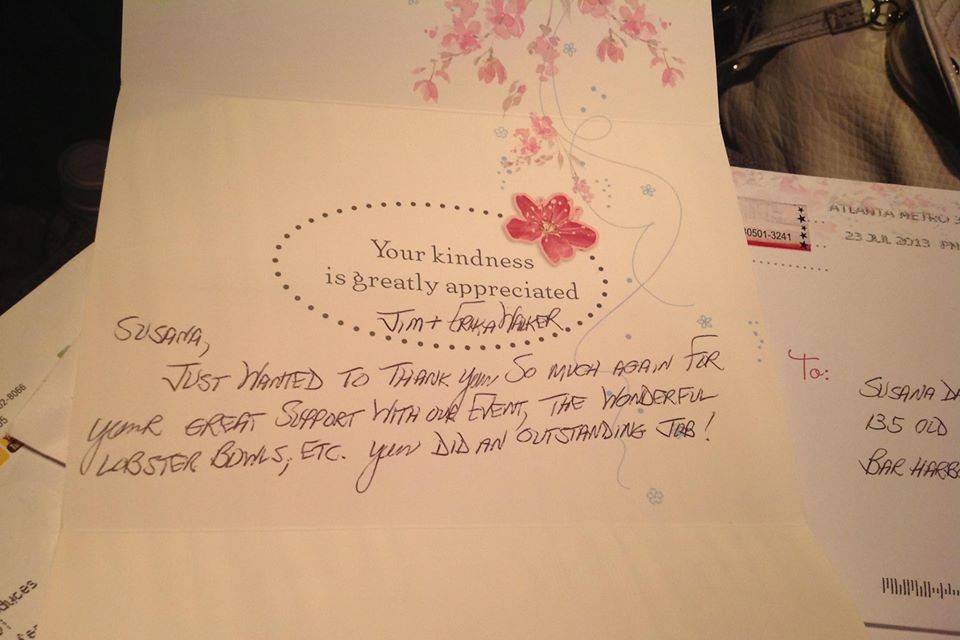 Your kindness
is greatly appreciated
Jim + Erika Walker
Susana,
Just wanted to thank you so much again for
your great support with our event, the wonderful
lobster bowls, etc. you did an outstanding job!
ATLANTA METRO 3
30501-3241
23 JUL 2013 PM
To:
Susana Da
135 Old
Bar Harbo
02-8066